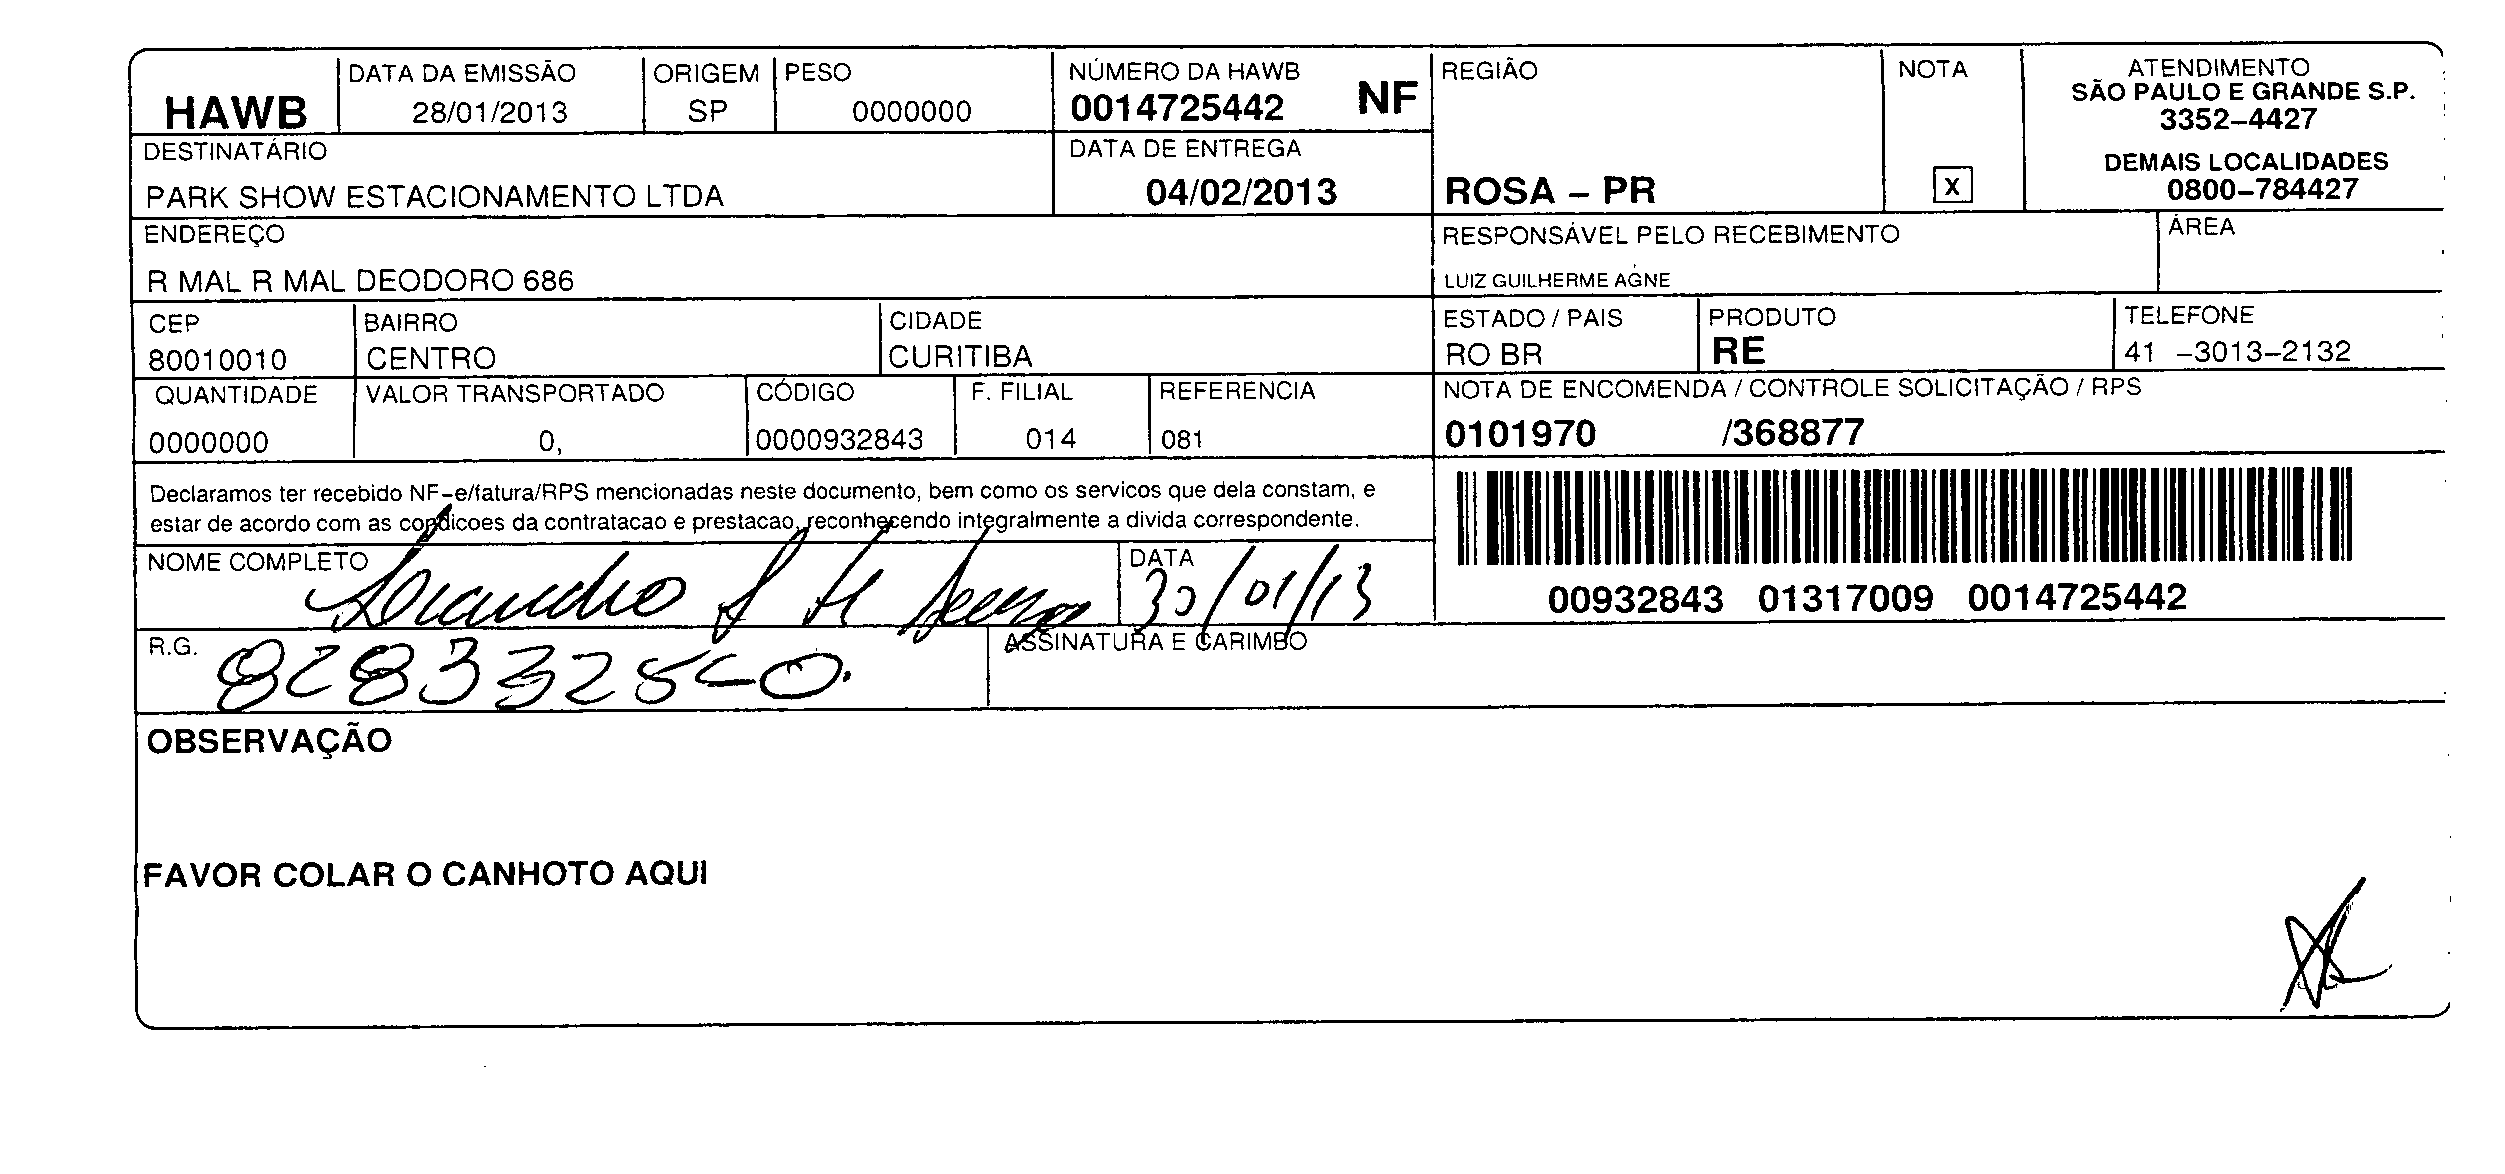 HAWB
DATA DA EMISSÃO
28/01/2013
ORIGEM
SP
PESO
0000000
NÚMERO DA HAWB
0014725442 NF
REGIÃO
ROSA – PR
NOTA
X
ATENDIMENTO
SÃO PAULO E GRANDE S.P.
3352–4427
DEMAIS LOCALIDADES
0800–784427
DESTINATÁRIO
PARK SHOW ESTACIONAMENTO LTDA
DATA DE ENTREGA
04/02/2013
ENDEREÇO
R MAL R MAL DEODORO 686
RESPONSÁVEL PELO RECEBIMENTO
LUIZ GUILHERME AGNE
ÁREA
CEP
80010010
BAIRRO
CENTRO
CIDADE
CURITIBA
ESTADO / PAIS
RO BR
PRODUTO
RE
TELEFONE
41 –3013–2132
QUANTIDADE
0000000
VALOR TRANSPORTADO
0,
CÓDIGO
0000932843
F. FILIAL
014
REFERENCIA
081
NOTA DE ENCOMENDA / CONTROLE SOLICITAÇÃO / RPS
0101970 /368877
Declaramos ter recebido NF–e/fatura/RPS mencionadas neste documento, bem como os servicos que dela constam, e
estar de acordo com as condicoes da contratacao e prestacao, reconhecendo integralmente a divida correspondente.
00932843 01317009 0014725442
NOME COMPLETO
Leandro
DATA
30/01/13
R.G.
ASSINATURA E CARIMBO
OBSERVAÇÃO
FAVOR COLAR O CANHOTO AQUI